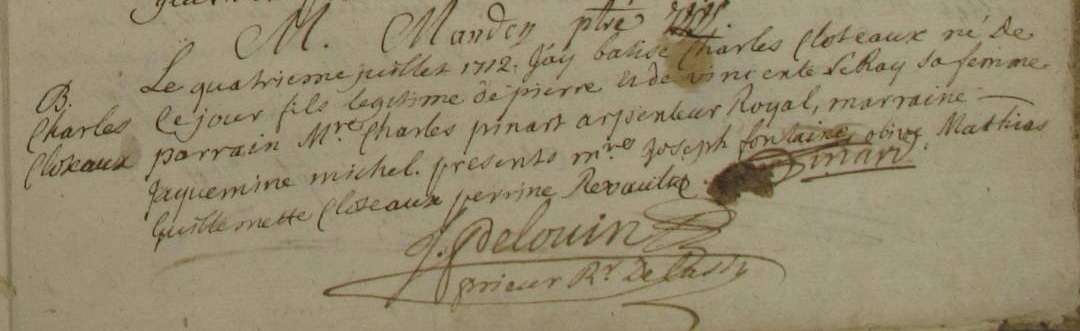 M. Mandey ptre
B.
Charles
Cloteaux
Le quatrieme juillet 1712. J'ay batisé Charles Cloteaux né de
ce jour fils legitime de pierre et de vincente LeRay sa femme
parrain Mre Charles pinart arpenteur Royal, marraine
Jaquemine michel. presents mres Joseph fontaine, olive Mathias
Guillemette Cloteaux perrine Revault.
Pinart
J. Jdelouin
prieur Rr De